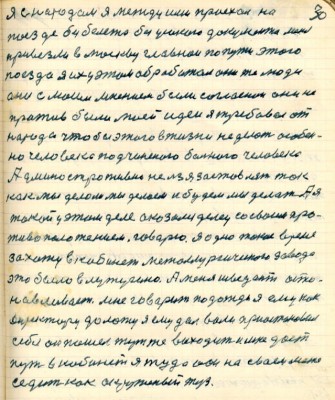 30
я с народам я между ими проехал на
поезде б билета б ценого документа мен
привезли в москву главное по пути этого
поезда я их у этом обработал они же люди
они с моим мнением были согласен они не
против были моей идеи я требовал от
народа чтобы этого в жизни не делют особен
но человека подчиненого больного человека
Административно нельзя заставлят так
как мы делом мы делаем и будем мы делат А я
такой у этом деле оказался делец со своим про
тивоположением, говарю. Я одно тоже время
захожу в кабинет металлургического завода
это было в лутугино. А меня шведать
мне говарят подожды я ему как
директору доложу я ему дал воли
себе он пошел тут же выходит и мне дает
путь в кабинет я туда он на своем месте
седит как окружный туз.